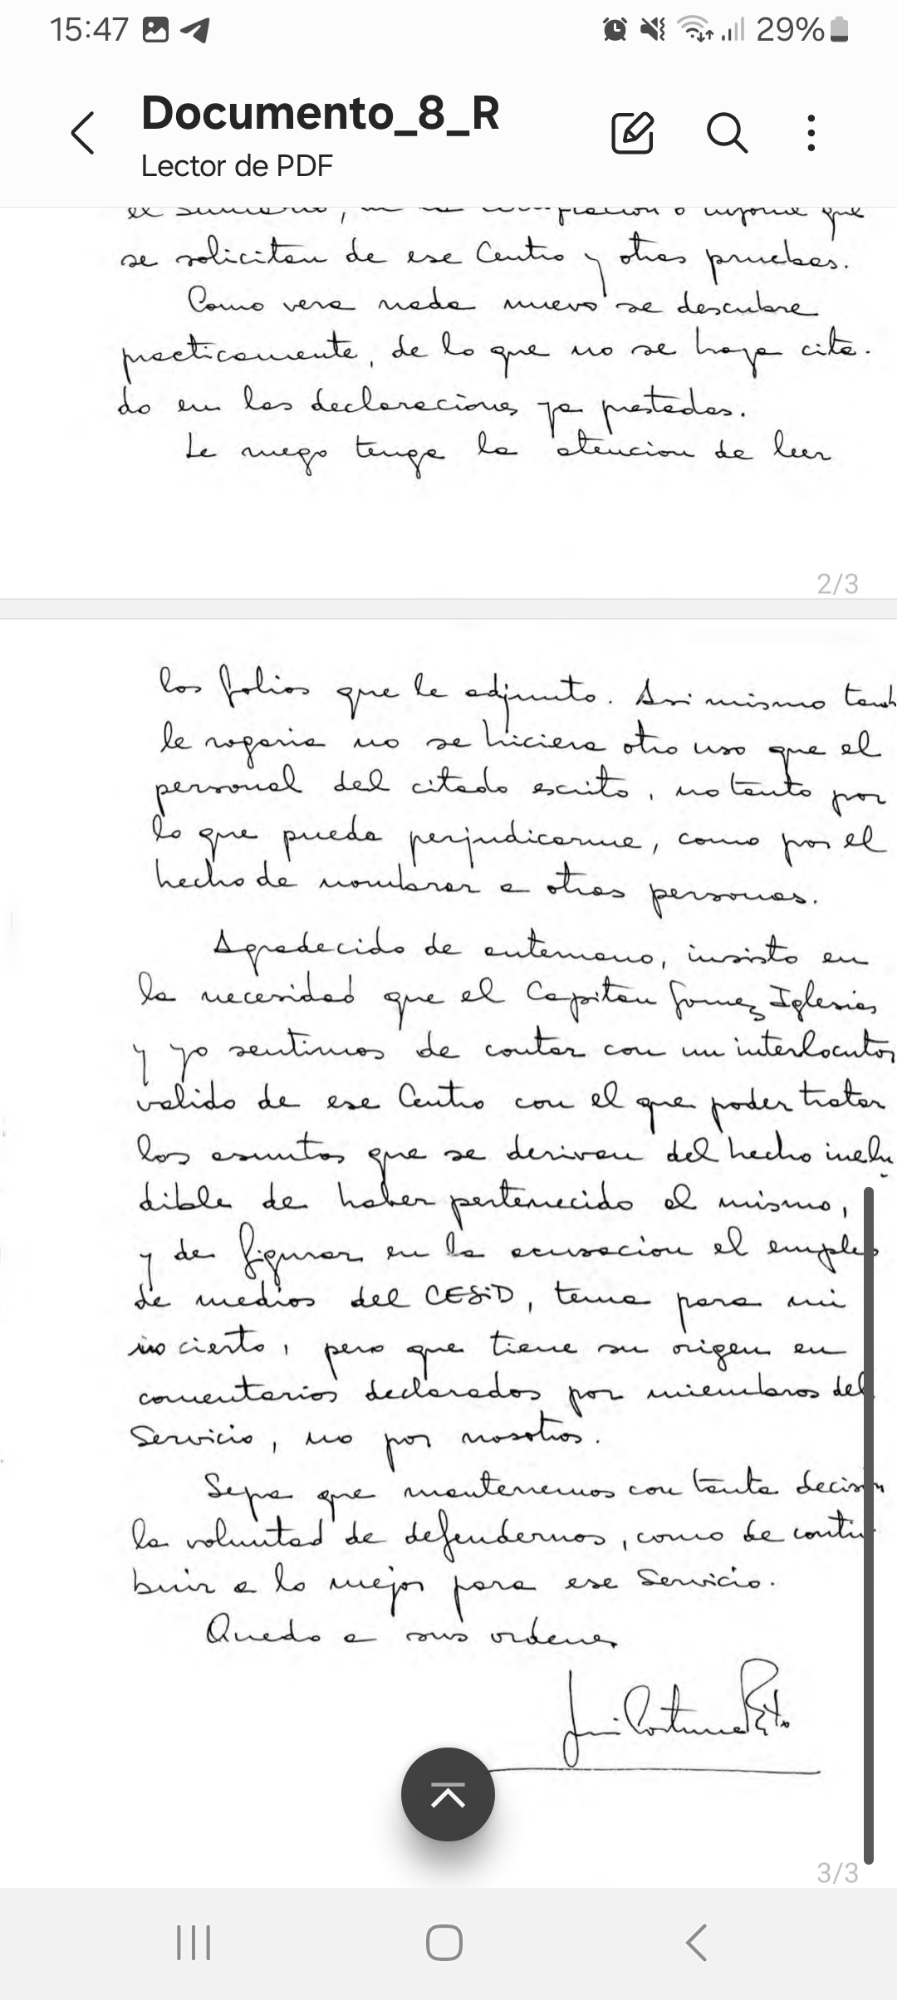 15:47
29%
Documento_8_R
Lector de PDF
el sumario, o informe que
se solicitan de ese Centro y otras pruebas.
Como vera nada nuevo se descubre
practicamente, de lo que no se haya cita-
do en las declaraciones ya prestadas.
Le ruego tenga la atencion de leer
2/3
los folios que le adjunto. Asi mismo tamb
le rogaria no se hiciera otro uso que el
personal del citado escrito, no tanto por
lo que pueda perjudicarme, como por el
hecho de nombrar a otras personas.
Agradecido de antemano, insisto en
la necesidad que el Capitan Gomez Iglesias
y yo sentimos de contar con un interlocutor
valido de ese Centro con el que poder tratar
los asuntos que se derivan del hecho inelu
dible de haber pertenecido al mismo,
y de figurar en la acusacion el empleo
de medios del CESID, tema para mi
no cierto, pero que tiene su origen en
comentarios declarados por miembros del
Servicio, no por nosotros.
Sepa que mantenemos con tanta decision
la voluntad de defendernos, como de contri
buir a lo mejor para ese Servicio.
Quedo a sus ordenes
3/3